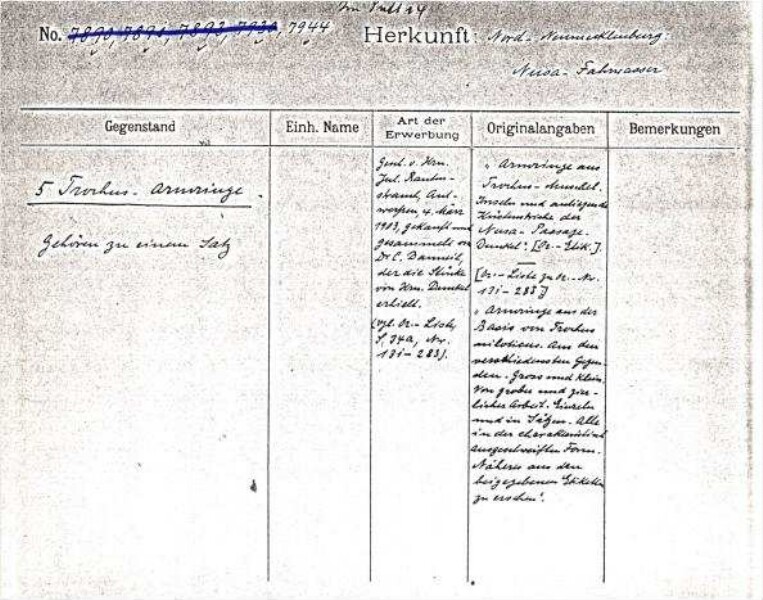 Im Pult 14
No. 7890, 7891, 7892, 7930, 7944 Herkunft: Nord-Neumecklenburg:
Nusa-Fahrwasser
Gegenstand
Einh. Name
Art der
Erwerbung
Originalangaben
Bemerkungen
5 Trochus-Armringe.
Gehören zu einem Satz
Gesch. v. Hrn.
Jul. Rauten-
strauch, Ant-
werpen, 4. März
1903, gekauft und
gesammelt von
Dr. C. Danneil,
der die Stücke
von Hrn. Dunkel
erhielt.
(vgl. Or.-Liste,
S. 34a, Nr.
131-288).
"Armringe aus
Trochus-Muschel.
Inseln und anliegende
Küstenstriche der
Nusa-Passage.
Dunkel". [Or.-Etik.].
[Or.-Liste zu Or.-Nr.
131-288]
"Armringe aus der
Basis von Trochus
niloticus. Aus den
verschiedensten Gegen-
den. Gross und klein.
Von grober und zier-
licher Arbeit. Einzeln
und in Sätzen. Alle
in der charakteristisch
ausgeschweiften Form.
Näheres aus den
beigegebenen Etiketten
zu ersehen".